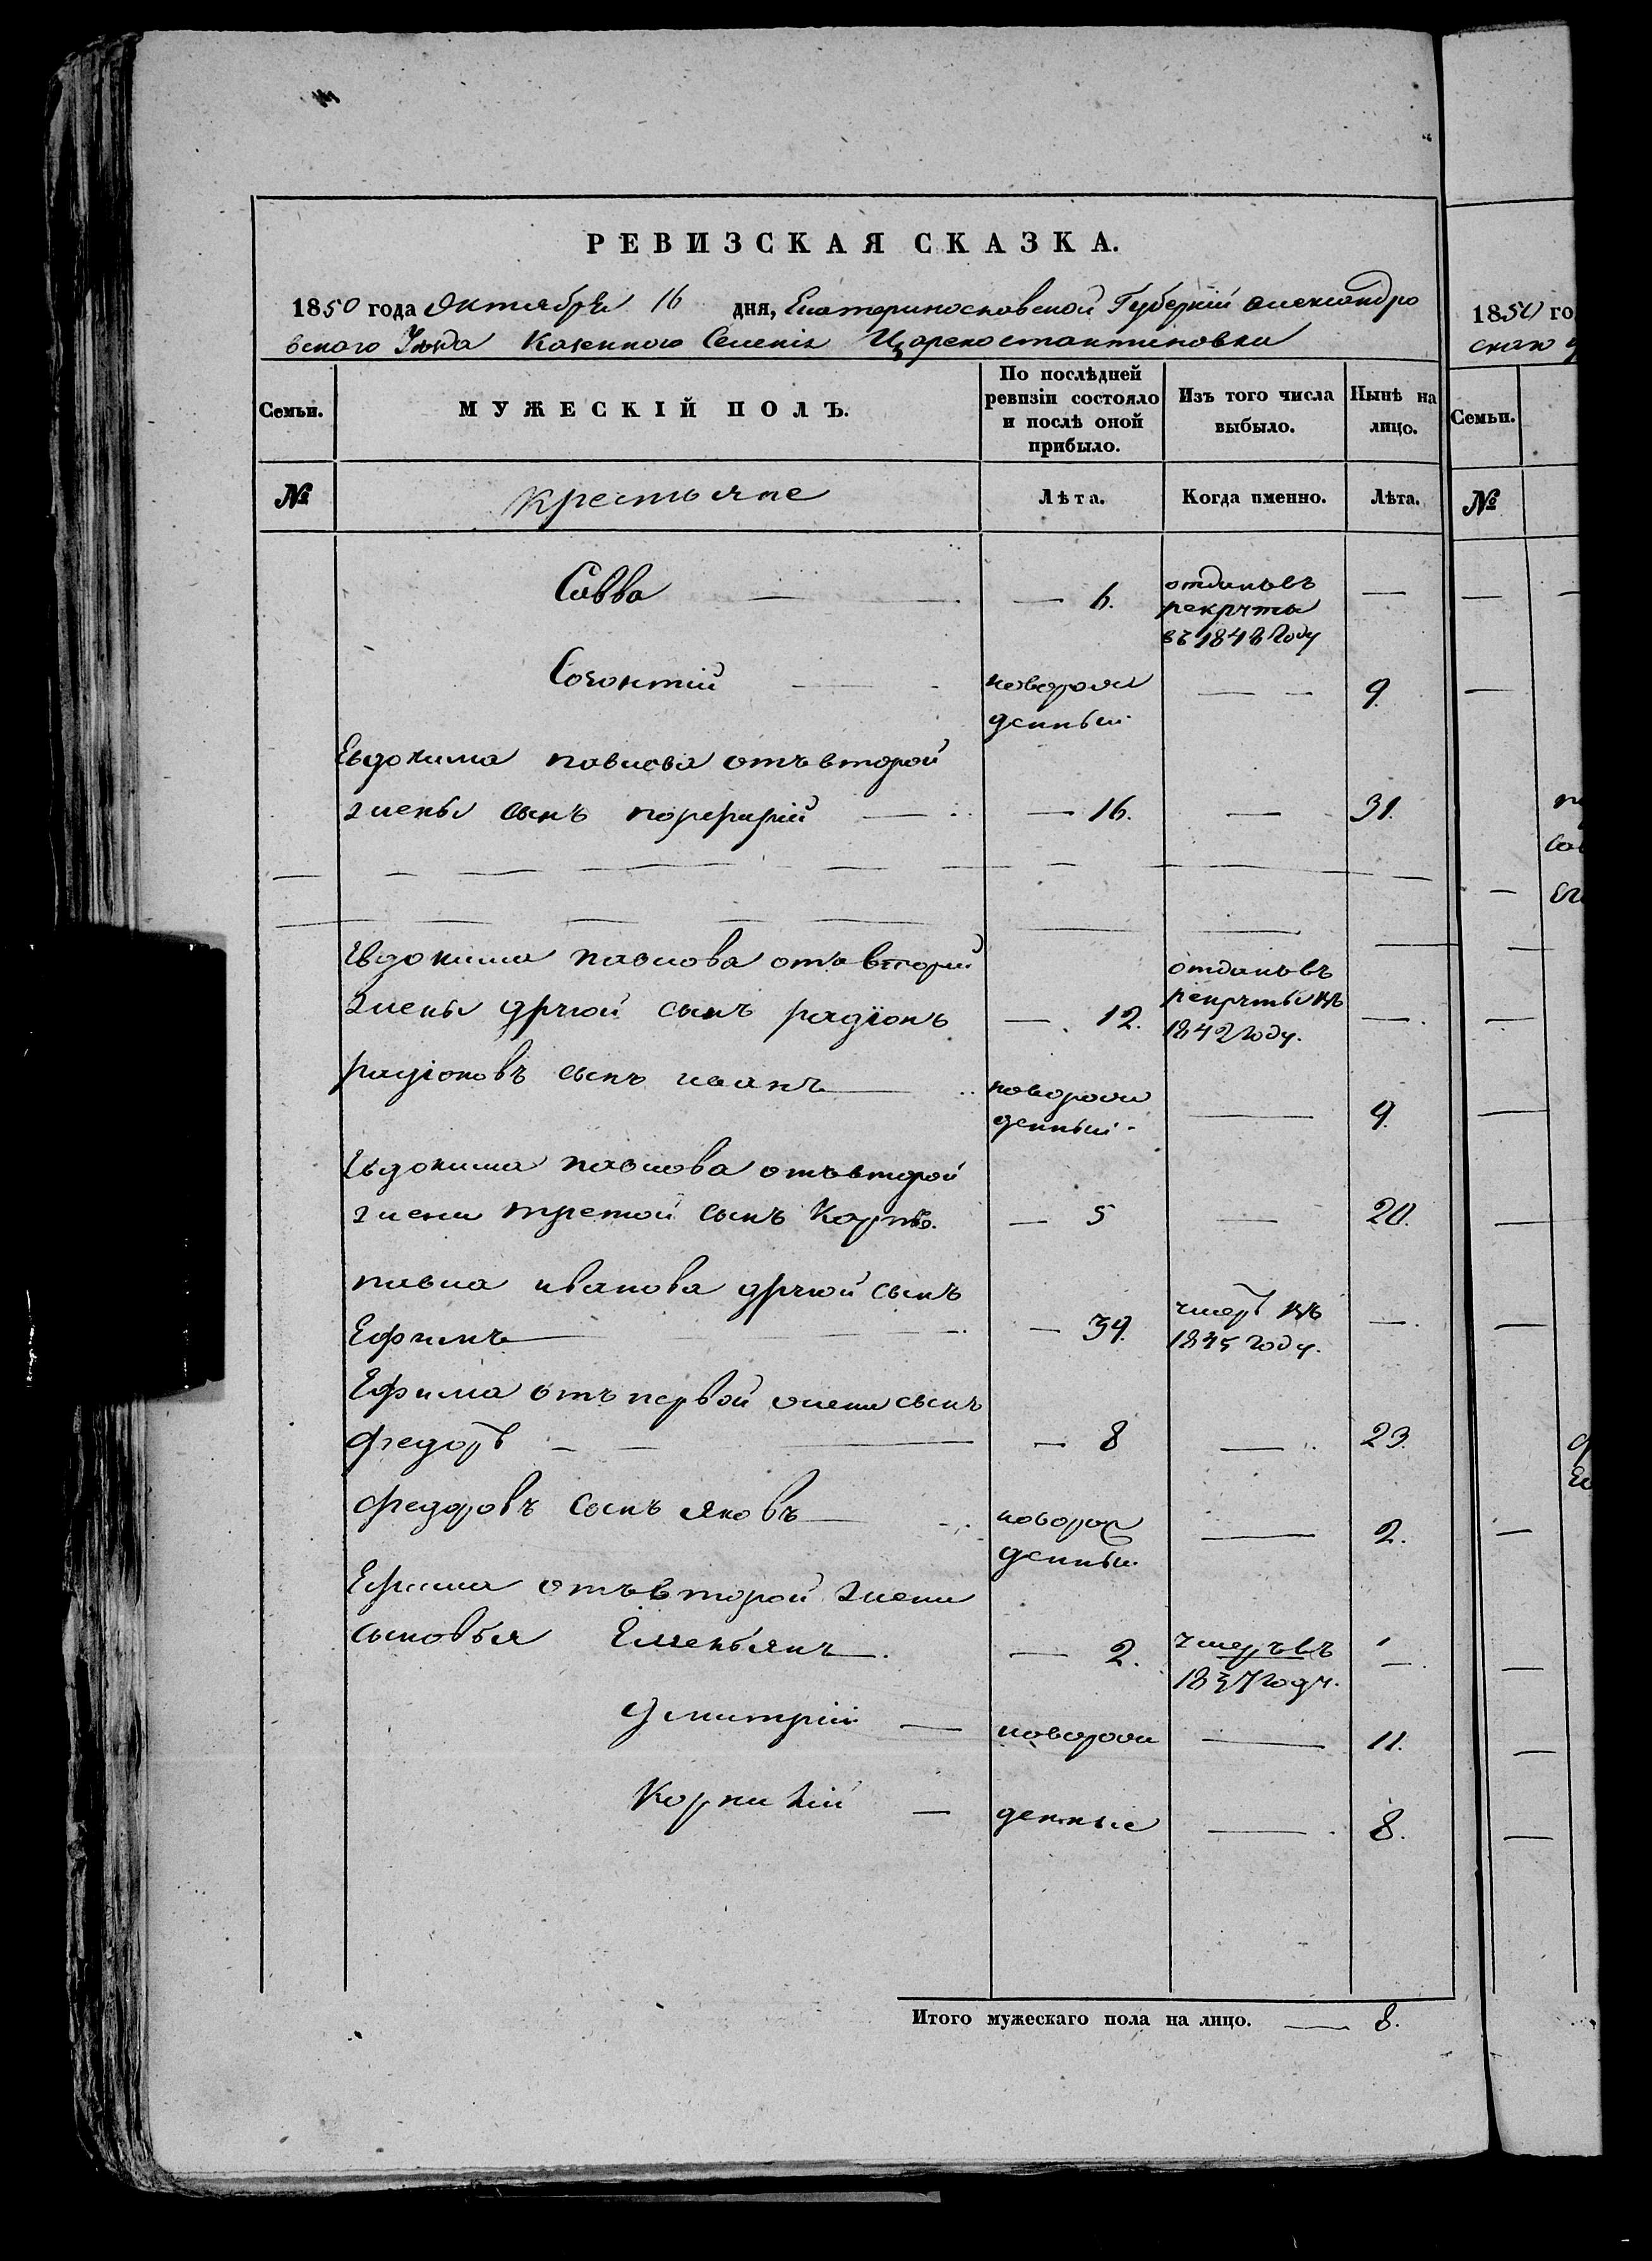 РЕВИЗСКАЯ СКАЗКА.
1850 года Октября 16 дня, Екатеринославской Губернии Александро
вскаго Уезда Казеннаго Селенія Цареконстантиновки
Семьи.
МУЖЕСКІЙ ПОЛЪ.
По послѣдней
ревизіи состояло
и послѣ оной
прибыло.
Изъ того числа
выбыло.
Нынѣ на
лицо.
№
крестьяне
Лѣта.
Когда именно.
Лѣта.
Савва — 6. отданъ въ
рекруты
въ 1848 Году —
Созонтій новорож
денный — 9.
Евдокима павлова отъ второй
жены сынъ порфирій — 16. — 31.
Евдокима павлова отъ второй
жены другой сынъ радіонъ — 12. отданъ въ
рекруты въ
1842 Году. —
радіоновъ сынъ иванъ новорож
денный — 9.
Евдокима павлова отъ второй
жени третой сынъ Карпъ. — 5 — 20.
павла иванова другой сынъ
Ефимъ — 39. умеръ въ
1845 году. —
Ефима отъ первой жени сынъ
федоръ — 8 — 23.
федоровъ сынъ яковъ новорож
денный — 2.
Ефима отъ второй жени
сыновья Емельянъ — 2. умеръ въ
1837 году. —
дмитрій — новорож — 11.
Корнилій — денные — 8.
Итого мужескаго пола на лицо. — 8.
1850 го
скаго
Семьи.
№